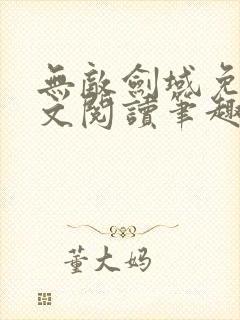 無敵劍域免
文閱讀筆趣
董大妈